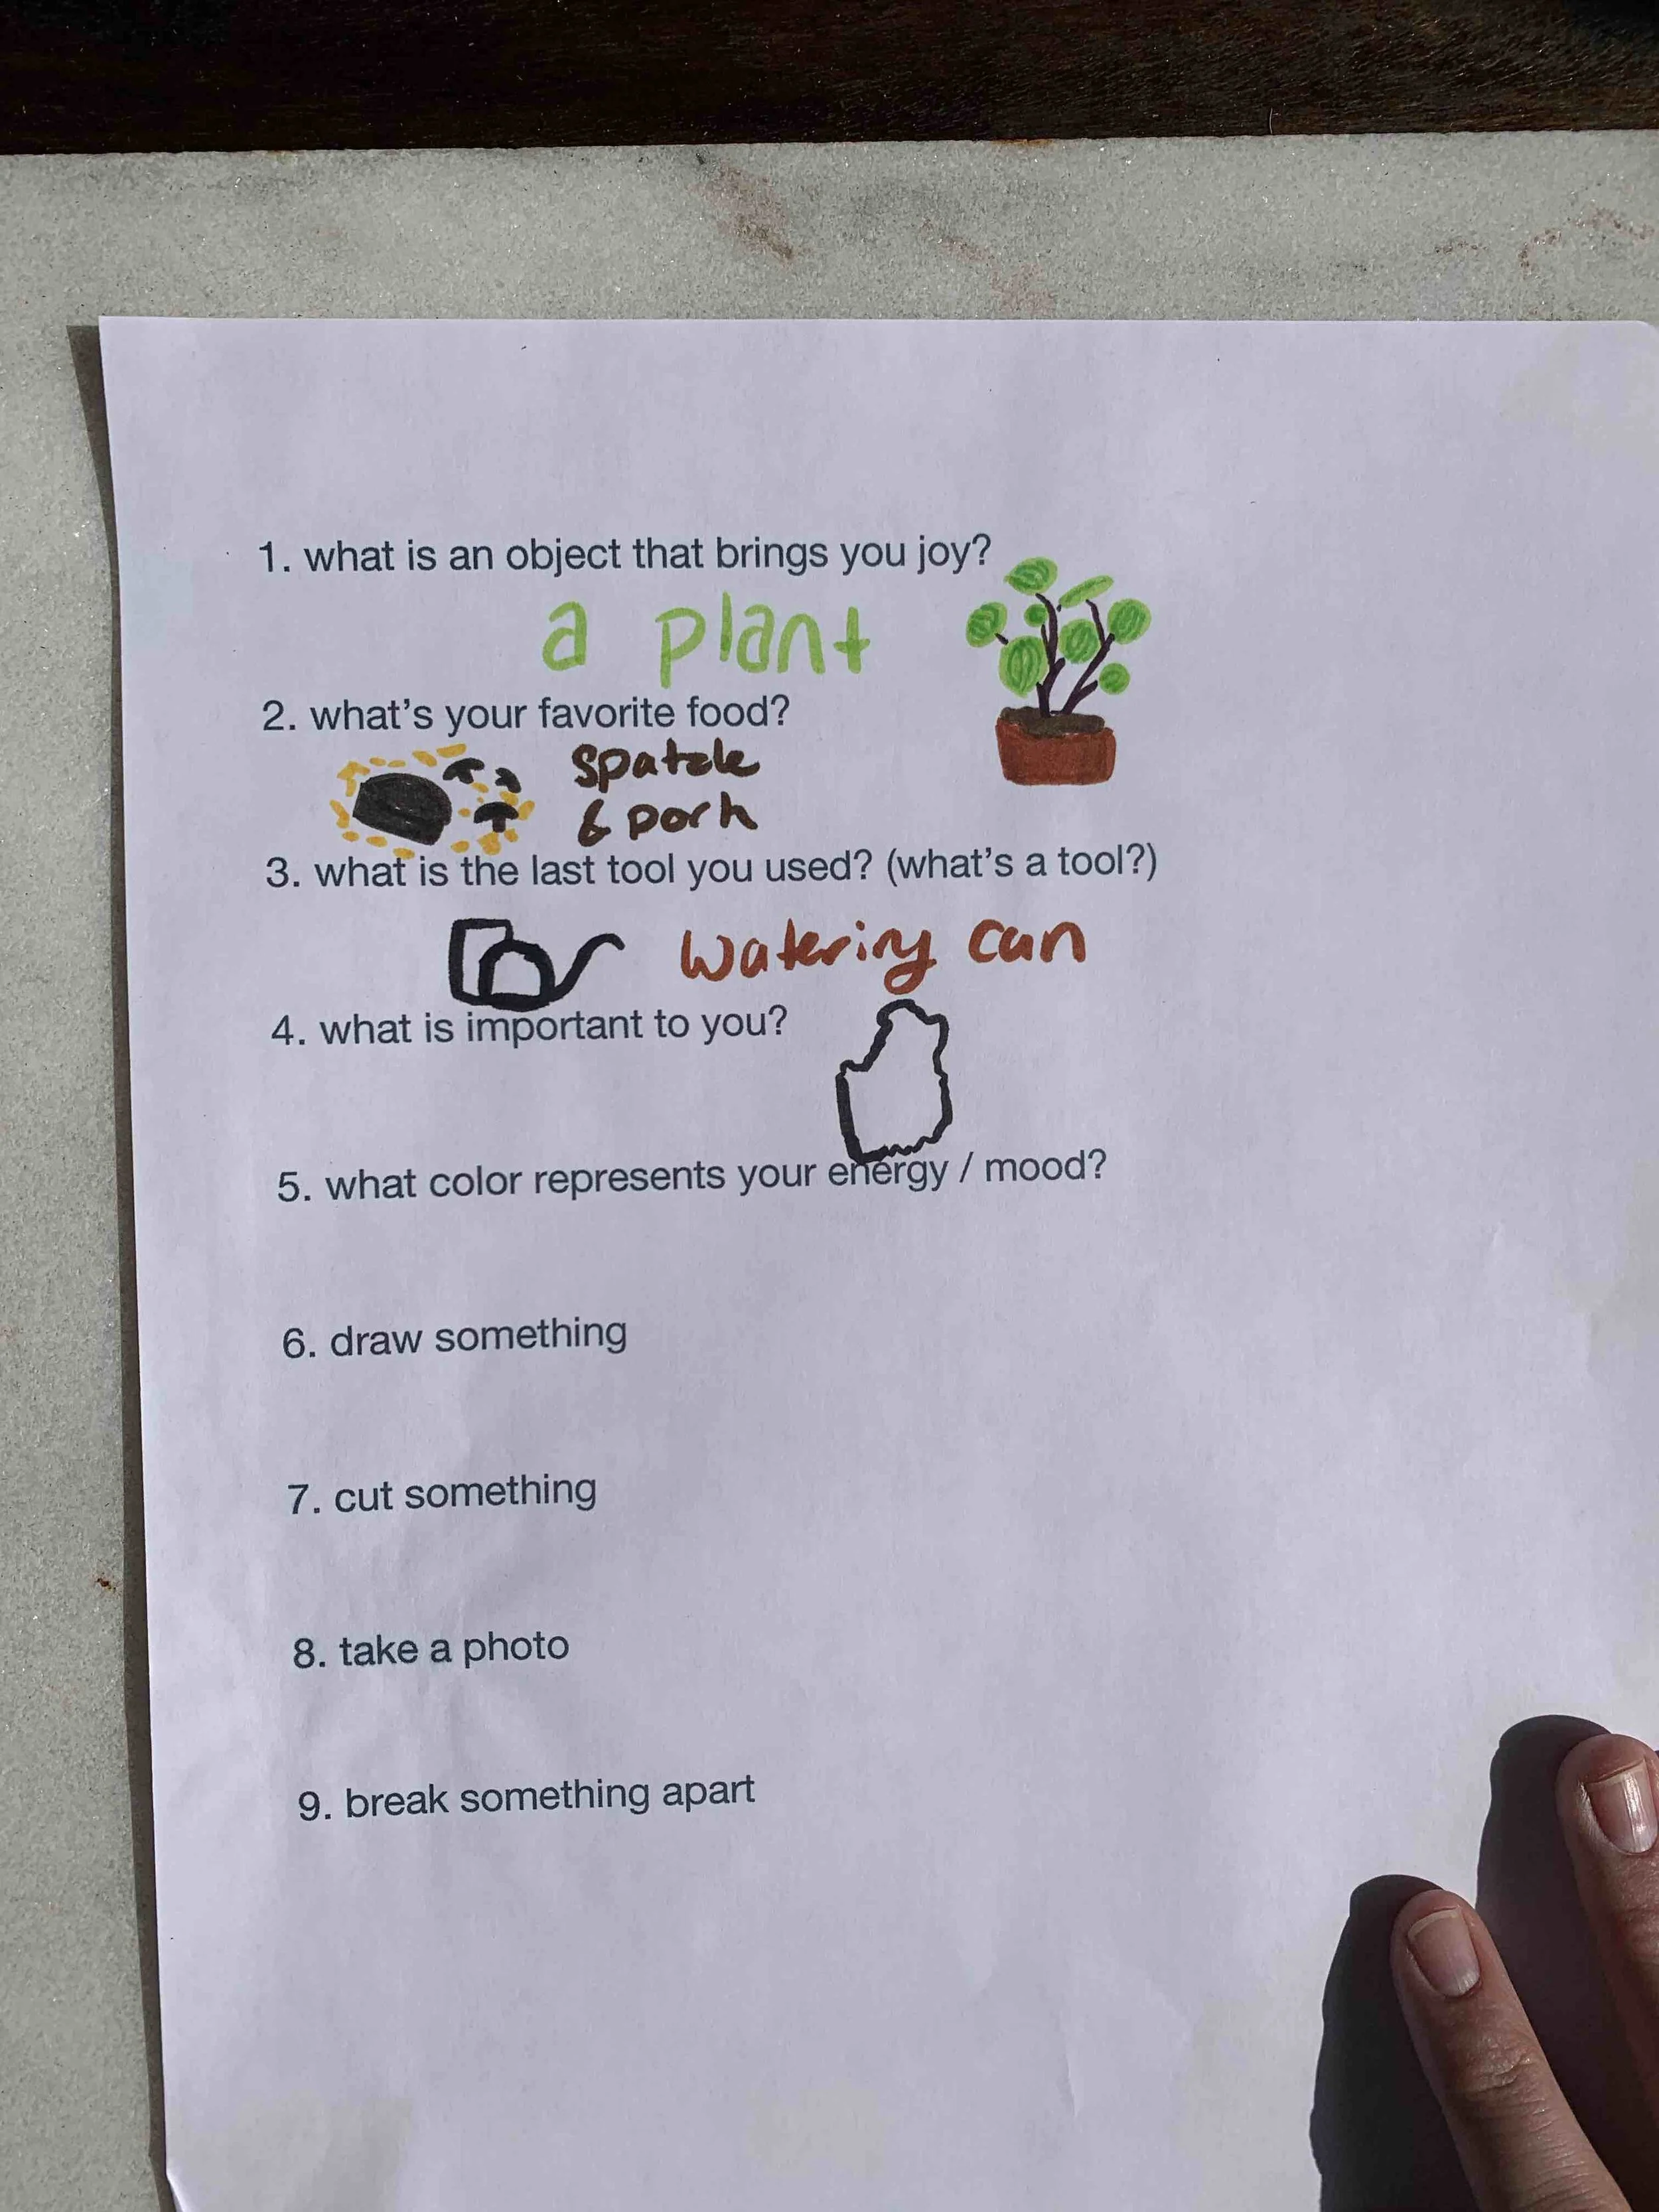 1. what is an object that brings you joy?
a plant
2. what's your favorite food?
spatzle
& pork
3. what is the last tool you used? (what's a tool?)
watering can
4. what is important to you?
5. what color represents your energy / mood?
6. draw something
7. cut something
8. take a photo
9. break something apart